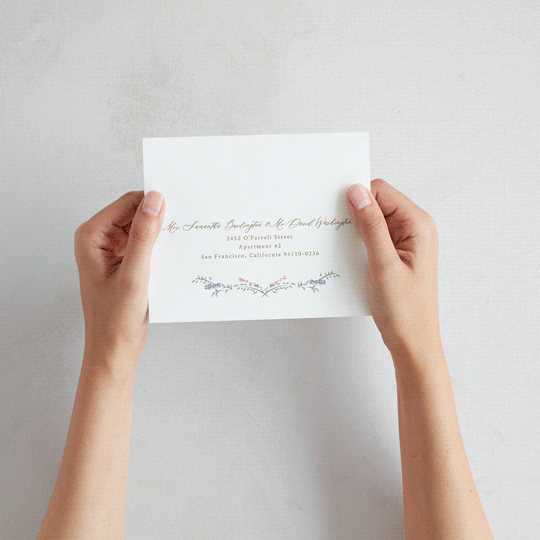 Mrs. Samantha Darlington & Mr. David Washington
2452 O'Farrell Street
Apartment #2
San Francisco, California 94110-0236